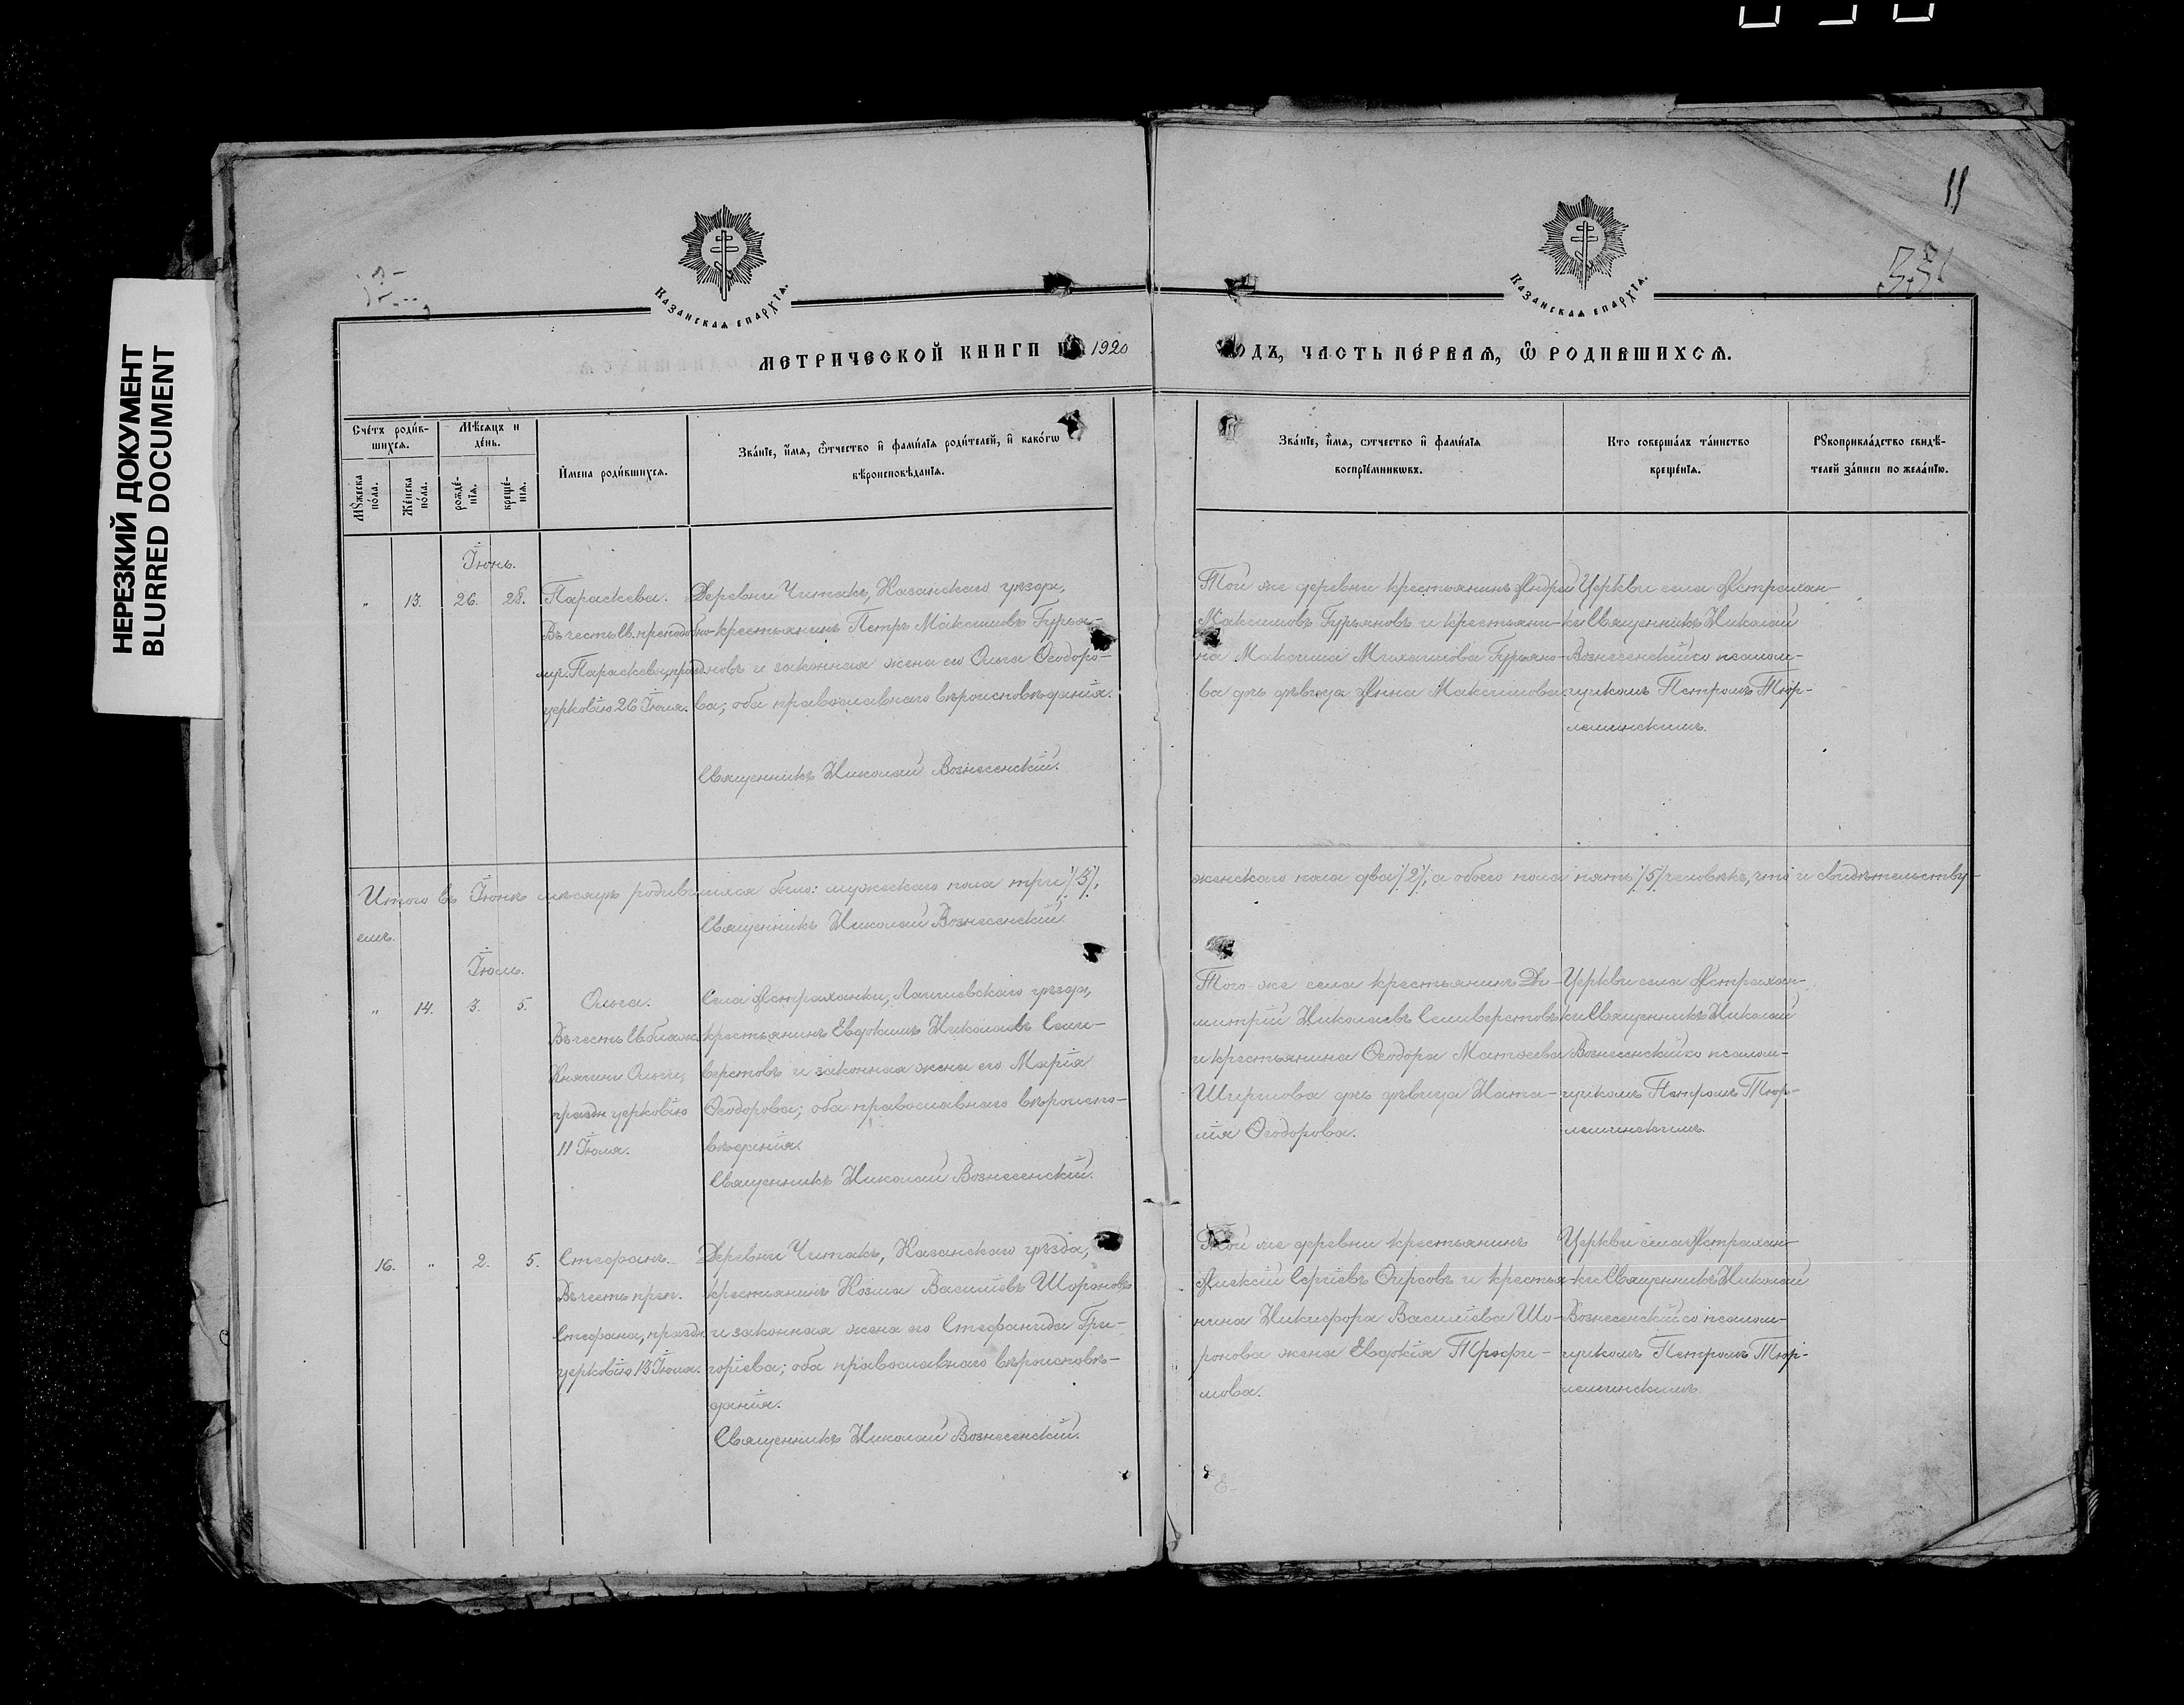 НЕРЕЗКИЙ ДОКУМЕНТ
BLURRED DOCUMENT
11
Казанская епархїѧ.
Казанская епархїѧ.
МЕТРИЧЕСКОЙ КНИГИ 1920
ОДЪ, ЧАСТЬ ПЕ́РВАЯ, Ѿ РОДИВШИХСЯ.
Сче́тъ роди́в-
шихся.
Мѣсяцъ и
де́нь.
Мꙋ́жеска
по́ла.
Же́нска
по́ла.
рожде́-
нїя.
креще́-
нїя.
И҆мена роди́вшихся.
Зва́нїе, и҆́мя, ѻ҆́тчество и҆ фами́лїя роди́телей, и҆ како́гѡ
вѣроисповѣ́данїя.
Зва́нїе, и҆́мя, ѻтчество и҆ фами́лїя
воспрїе́мникѡвъ.
Кто соверша́лъ та́инство
креще́нїя.
Рꙋкоприкла́дство свидѣ́-
телей за́писи по жела́нїю.
Іюнь.
" 13. 26. 28. Параскева.
Въ честь св. преподобно-
муч. Параскевы, празд.
церковію 26 Іюля.
Деревни Читакъ, Казанскаго уѣзда,
крестьянинъ Петръ Максимовъ Гурья-
новъ и законная жена его Ольга Ѳеодоро-
ва; оба православнаго вѣроисповѣданія.
Священникъ Николай Вознесенскій.
Той же деревни крестьянинъ Андрей
Максимовъ Гурьяновъ и крестьяни-
на Максима Михаилова Гурьяно-
ва дчь дѣвица Анна Максимова.
Церкви села Астрахан-
ки Священникъ Николай
Вознесенскій со псалом-
щикомъ Петромъ Тюр-
леминскимъ.
Итого въ Іюнѣ мѣсяцѣ родившихся было: мужескаго пола три /3/,
женскаго пола два /2/, а обоего пола пять /5/ человѣкъ, что и свидѣтельству-
емъ.
Священникъ Николай Вознесенскій.
Іюль.
" 14. 3. 5. Ольга.
Въ честь св. блаж.
Княгини Ольги,
праздн. церковію
11 Іюля.
Села Астраханки, Лаишевскаго уѣзда,
крестьянинъ Евдокимъ Николаевъ Сели-
верстовъ и законная жена его Марія
Ѳеодорова; оба православнаго вѣроиспо-
вѣданія.
Священникъ Николай Вознесенскій.
Того-же села крестьянинъ Ди-
митрій Николаевъ Селиверстовъ
и крестьянина Ѳеодора Матѳеева
Ширшова дчь дѣвица Ната-
лія Ѳеодорова.
Церкви села Астрахан-
ки Священникъ Николай
Вознесенскій со псалом-
щикомъ Петромъ Тюр-
леминскимъ.
16. " 2. 5. Стефанъ.
Въ честь преп.
Стефана, праздн.
церковію 13 Іюля.
Деревни Читакъ, Казанскаго уѣзда,
крестьянинъ Козма Василіевъ Шороновъ
и законная жена его Стефанида Гри-
горіева; оба православнаго вѣроисповѣ-
данія.
Священникъ Николай Вознесенскій.
Той же деревни крестьянинъ
Алексій Сергіевъ Ѳирсовъ и крестья-
нина Никифора Василіева Шо-
ронова жена Евдокія Трофи-
мова.
Церкви села Астрахан-
ки Священникъ Николай
Вознесенскій со псалом-
щикомъ Петромъ Тюр-
леминскимъ.